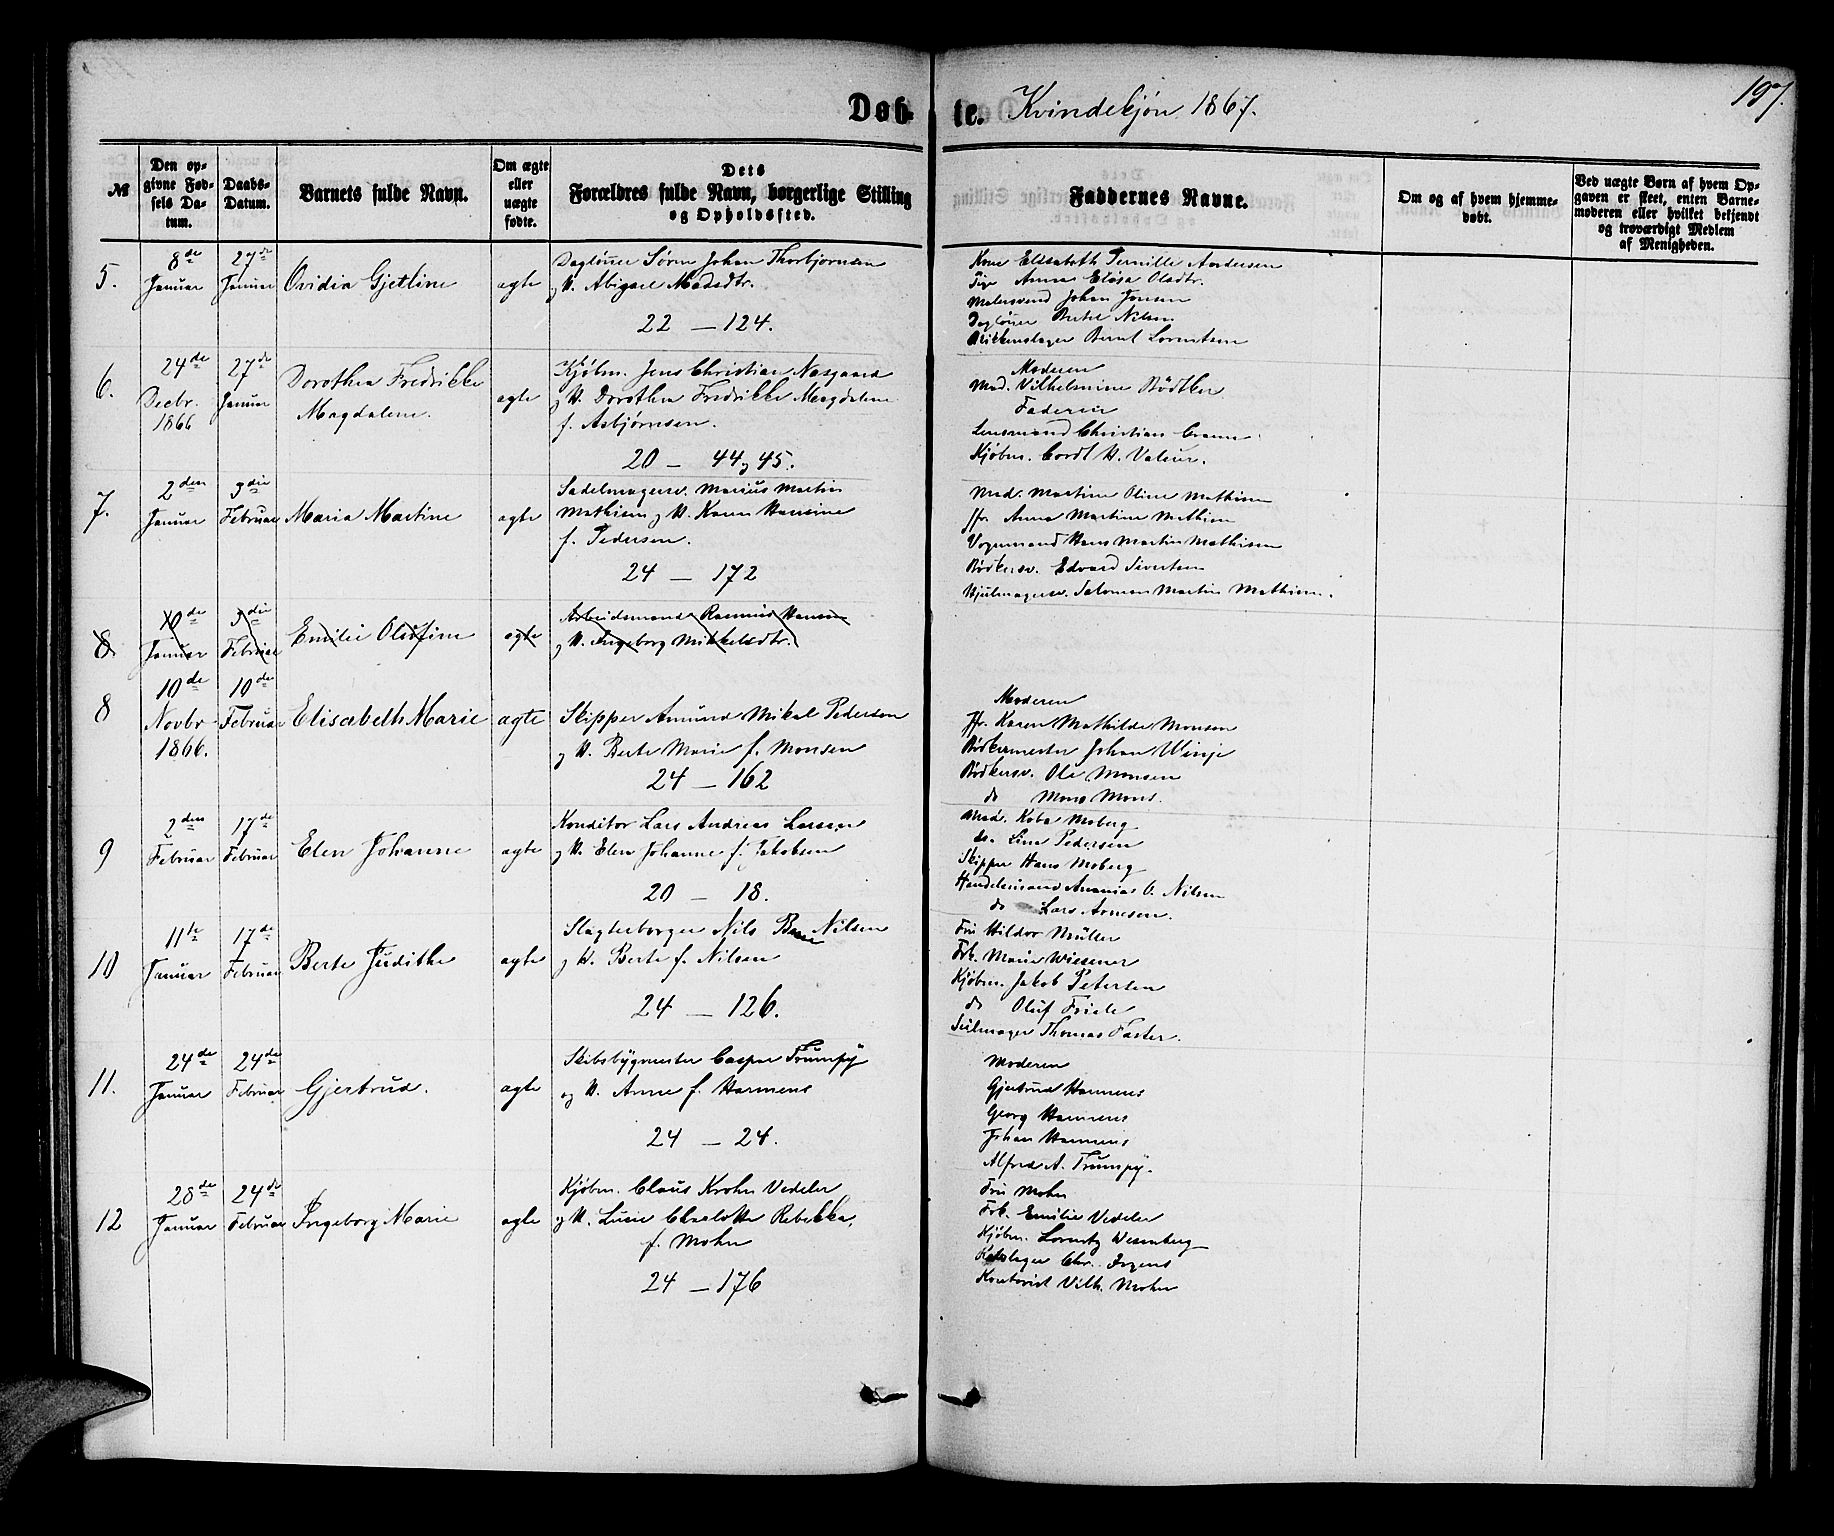 197.
Døbte. Kvindekjøn 1867.
№
Den opgivne Fødsels Datum.
Daabs-Datum.
Barnets fulde Navn.
Om ægte eller uægte fødte.
Dets Forældres fulde Navn, borgerlige Stilling og Opholdssted.
Faddernes Navne.
Om og af hvem hjemmedøbt.
Ved uægte Børn af hvem Opgaven er skeet, enten Barnemoderen eller hvilket bekjendt og troværdigt Medlem af Menigheden.
5.
8de Januar
27de Januar
Ovidia Gjetline
ægte
Dagløner Søren Johan Thorbjørnsen
og H. Abigael Madsdtr.
22 — 124.
Kone Elisabeth Pernille Andersen
Pige Anna Elisa Olsdtr.
Malersvend Johan Jansen
Dagløner Bertel Nilsen
Blikkenslager Bernt Lorentsen
6.
24de Decbr. 1866
27de Januar
Dorothea Fredrikke
Magdalene.
ægte
Kjøbm. Jens Christian Naagaard
og H. Dorothea Fredrikke Magdalene
f. Asbjørnsen.
20 — 44 og 45.
Moderen
Mad. Vilhelmine Bødtker
Faderen
Lensmand Christian
Kjøbm. Cordt H. Valeur.
7.
2den Januar
3die Februar
Maria Martine
ægte
Sadelmagersv. Marius Martin
Mathisen og H. Karen Hansine
f. Pedersen.
24 — 172
Mad. Martine Oline Mathisen
Jfr. Anna Martine Mathisen
Vognmand Hans Martin Mathisen
Bødkersv. Edvard Sivertsen
Hjulmagersv. Salomon Martin Mathisen.
8
10de Januar
3die Februar
Emilie Olufine
ægte
Arbeidsmand Rasmus Hansen
og H. Ingeborg Mikkelsdtr.
8
10de Novbr 1866.
10de Februar
Elisabeth Marie
ægte
Skipper Amund Mikal Pederson
og H. Berte Marie f. Monsen
24 — 162
Moderen
Jfr. Karen Mathilde Monsen
Bødkermester Johan Winje
Bødkersv. Ole Monsen
do Mons Mons.
9
2den Februar
17de Februar
Elen Johanne
ægte
Konditor Lars Andreas Larsen
og H. Elen Johanne f. Jakobsen
20 — 18.
Mad. Moberg
do. Line Pedersen
Skipper Hans Moberg
Handelsmand Ananias O. Nilsen
do Lars Arnesen.
10
11te Januar
17de Februar
Berte Judithe
ægte
Slagterborger Nils Nilsen
og H. Berte f. Nilsen
24 — 126.
Fru Hildor Müller
Frk. Marie Wiesener
Kjøbm. Jakob Petersen
do Oluf Friele
Seilmager Thomas Faster.
11.
24de Januar
24de Februar
Gjertrud.
ægte
Skibsbygmester Casper Trumpÿ
og H. Anne f. Harmens
24 — 24.
Moderen
Gjertrud Harmens
Georg Harmens
Johan Harmens
Alfred A. Trumpÿ.
12
28de Januar
24de Februar
Ingeborg Marie
ægte
Kjøbm. Claus Krohn Vedeler
og H. Lucie Charlotte Rebekka,
f. Mohn
24 — 176
Fru Mohn
Frk. Emilie Vedeler
Kjøbm. Lorentz Wesenberg
Chr. Irgens
Kontorist Vilh. Mohn